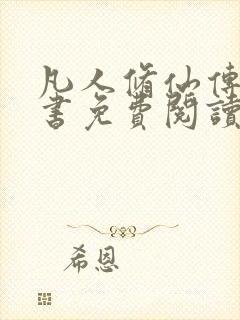 凡人脩仙傳
書免費閱讀
希恩